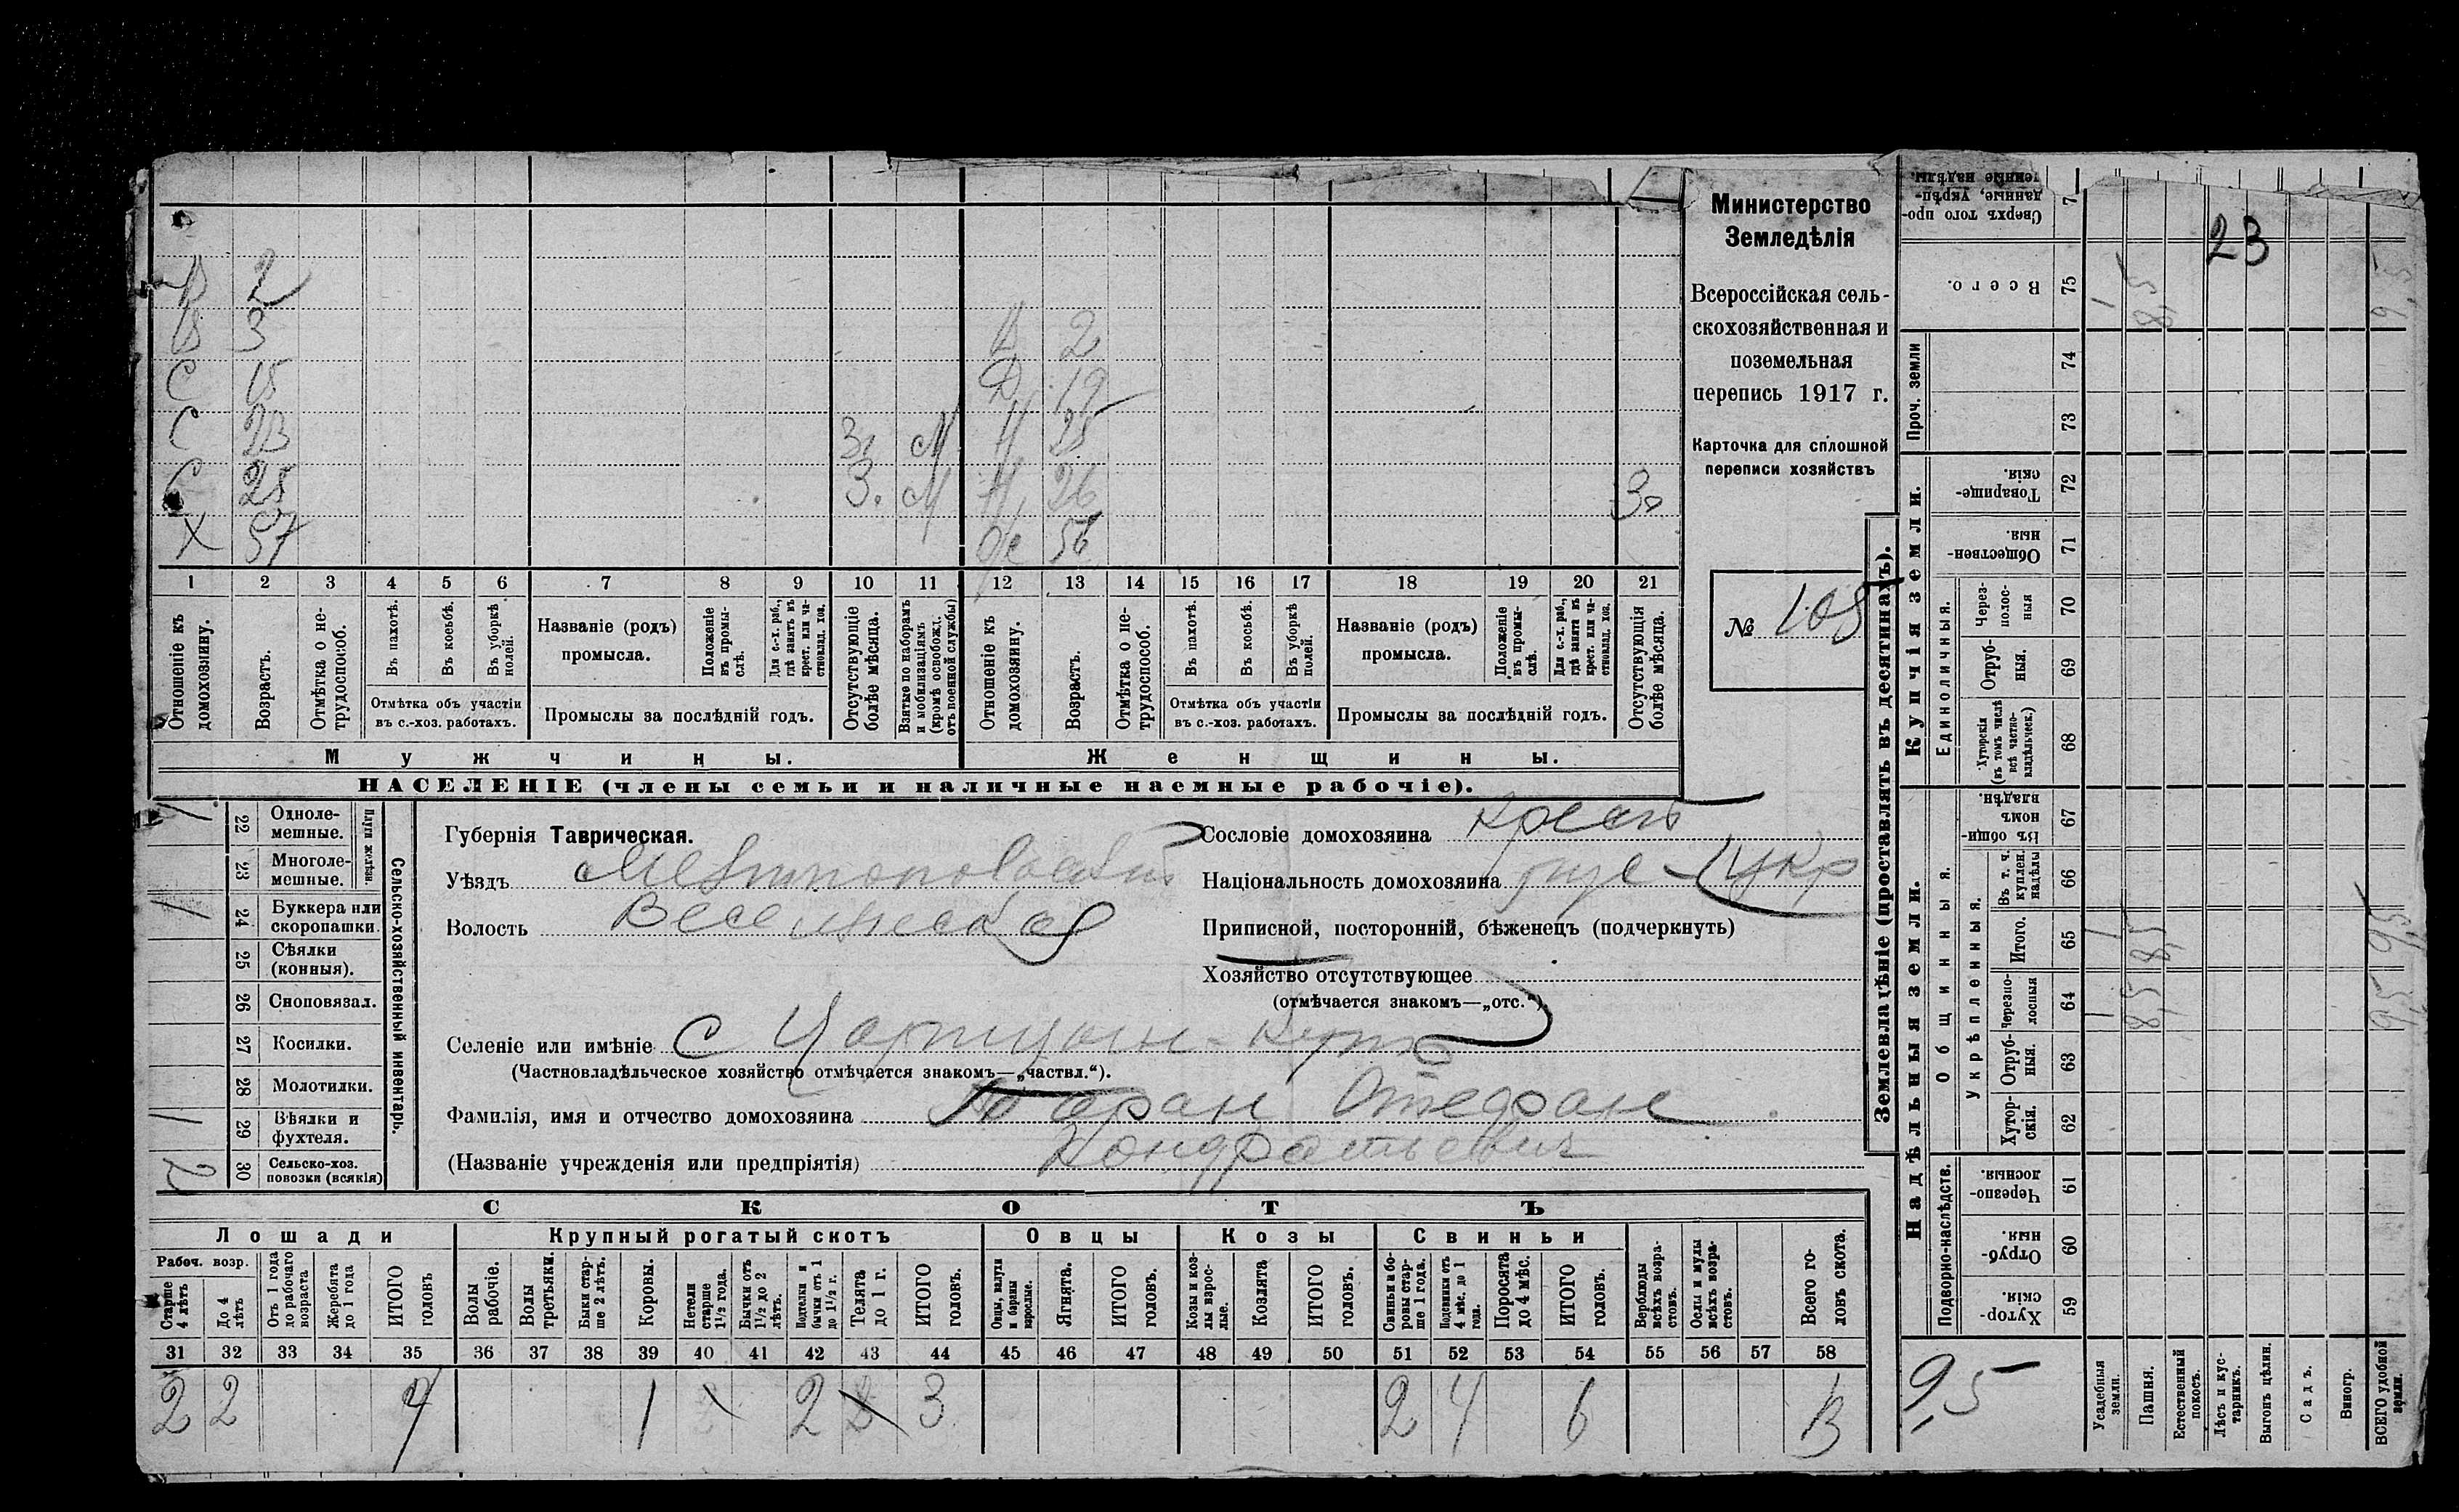 В 2
В 3 Д 2
С 15 Д 19
С 23 З. М Н 25
С 25 З. М Н 26 З.
Х 57 Ж 56
1 2 3 4 5 6 7 8 9 10 11 12 13 14 15 16 17 18 19 20 21
Отношеніе къ домохозяину.
Возрастъ.
Отмѣтка о нетрудоспособ.
Въ пахотѣ.
Въ косьбѣ.
Въ уборкѣ полей.
Отмѣтка объ участіи
въ с.-хоз. работахъ.
Названіе (родъ)
промысла.
Положеніе въ промыслѣ.
Для с.-х. раб., гдѣ занятъ въ крест. или частновлад. хоз.
Промыслы за послѣдній годъ.
Отсутствующіе болѣе мѣсяца.
Взятые по наборамъ и мобилизаціямъ (кромѣ освобожд. отъ военной службы)
Отношеніе къ домохозяину.
Возрастъ.
Отмѣтка о нетрудоспособ.
Въ пахотѣ.
Въ косьбѣ.
Въ уборкѣ полей.
Отмѣтка объ участіи
въ с.-хоз. работахъ.
Названіе (родъ)
промысла.
Положеніе въ промыслѣ.
Для с.-х. раб., гдѣ занята въ крест. или частновлад. хоз.
Промыслы за послѣдній годъ.
Отсутствующія болѣе мѣсяца.
Мужчины. Женщины.
НАСЕЛЕНІЕ (члены семьи и наличные наемные рабочіе).
Министерство
Земледѣлія
Всероссійская сель-
скохозяйственная и
поземельная
перепись 1917 г.
Карточка для сплошной
переписи хозяйствъ
№ 108
Сельско-хозяйственный инвентарь.
Плуги желѣзн.
1 22 Одноле-
мешные.
23 Многоле-
мешные.
1 24 Буккера или
скоропашки.
25 Сѣялки
(конныя).
26 Сноповязал.
27 Косилки.
28 Молотилки.
1 29 Вѣялки и
фухтеля.
2 30 Сельско-хоз.
повозки (всякія)
Губернія Таврическая.
Уѣздъ Мелитопольскій
Волость Веселовская
Селеніе или имѣніе с Царицынъ-Кутъ
(Частновладѣльческое хозяйство отмѣчается знакомъ—„частвл.“).
Фамилія, имя и отчество домохозяина Стефан
(Названіе учрежденія или предпріятія) Кондратьевич
Сословіе домохозяина Крест
Національность домохозяина рус-(укр
Приписной, посторонній, бѣженецъ (подчеркнуть)
Хозяйство отсутствующее
(отмѣчается знакомъ—„отс.“).
СКОТЪ
Лошади Крупный рогатый скотъ Овцы Козы Свиньи
Рабоч. возр.
Старше 4 лѣтъ
До 4 лѣтъ
Отъ 1 года до рабочаго возраста
Жеребята до 1 года
ИТОГО головъ
Волы рабочіе.
Волы третьяки.
Быки старше 2 лѣтъ.
Коровы.
Нетели старше 1½ года.
Бычки отъ 1½ до 2 лѣтъ.
Подтелки и бычки отъ 1 до 1½ г.
Телята до 1 г.
ИТОГО головъ.
Овцы, валухи и бараны взрослые.
Ягнята.
ИТОГО головъ.
Козы и козлы взрослые.
Козлята
ИТОГО головъ.
Свиньи и боровы старше 1 года.
Подсвинки отъ 4 мѣс. до 1 года.
Поросята до 4 мѣс.
ИТОГО головъ.
Верблюды всѣхъ возрастовъ.
Ослы и мулы всѣхъ возрастовъ.
Всего головъ скота.
31 32 33 34 35 36 37 38 39 40 41 42 43 44 45 46 47 48 49 50 51 52 53 54 55 56 57 58
2 2 4 1 2 3 2 4 6 13
Землевладѣніе (проставлять въ десятинахъ).
Надѣльныя земли. Купчія земли. Проч. земли
Подворно-наслѣдств.
Общинныя.
Укрѣпленныя.
Единоличныя.
Сверхъ того проданные, укрѣпленные надѣлы.
75 Всего. 1 8,5 9,5
23
74
73
72 Товарищескія.
71 Общественныя.
70 Черезполосныя
69 Отрубныя.
68 Хуторскія (въ томъ числѣ всѣ частновладѣльческ.)
67 Въ общинномъ владѣн.
66 Въ т. ч. куплен. надѣлы
65 Итого. 1 8,5 9,5
64 Черезполосныя 1 8,5 9,5
63 Отрубныя.
62 Хуторскія.
61 Черезполосныя.
60 Отрубныя.
59 Хуторскія.
9,5
Усадебныя земли.
Пашня.
Естественный покосъ.
Лѣсъ и кустарникъ.
Выгонъ цѣлин.
Садъ.
Виногр.
ВСЕГО удобной земли.